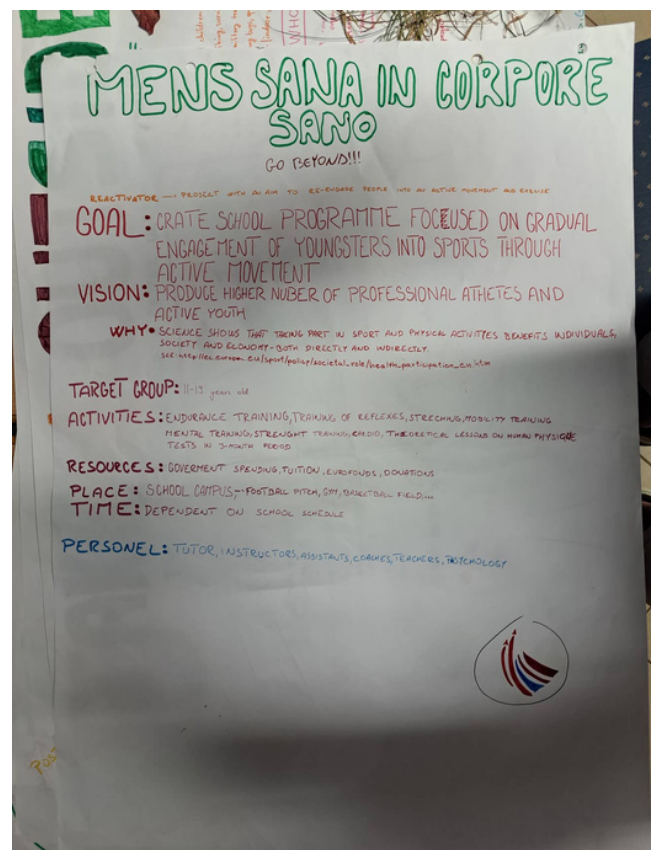 MENS SANA IN CORPORE
SANO
GO BEYOND!!!
REACTIVATOR → PROJECT WITH AN AIM TO RE-ENGAGE PEOPLE INTO AN ACTIVE MOVEMENT AND EXERCISE
GOAL: CRATE SCHOOL PROGRAMME FOCEUSED ON GRADUAL
ENGAGEMENT OF YOUNGSTERS INTO SPORTS THROUGH
ACTIVE MOVEMENT
VISION: PRODUCE HIGHER NUBER OF PROFESSIONAL ATHETES AND
ACTIVE YOUTH
WHY• SCIENCE SHOWS THAT TAKING PART IN SPORT AND PHYSICAL ACTIVITYES BENEFITS INDIVIDUALS,
SOCIETY AND ECONOMY - BOTH DIRECTLY AND INDIRECTLY.
see: http://ec.europa.eu/sport/policy/societal_role/health_participation_en.htm
TARGET GROUP: 11-15 years old
ACTIVITIES: ENDURANCE TRAINING, TRAINING OF REFLEXES, STRECHING, MOBILITY TRAINING
MENTAL TRAINING, STRENGHT TRAINING, CARDIO, THEORETICAL LESSONS ON HUMAN PHYSIQUE
TESTS IN 3-MONTH PERIOD
RESOURCES: GOVERMENT SPENDING, TUITION, EUROFONDS, DONATIONS
PLACE: SCHOOL CAMPUS, - FOOTBALL PITCH, GYM, BASKETBALL FIELD,...
TIME: DEPENDENT ON SCHOOL SCHEDULE
PERSONEL: TUTOR, INSTRUCTORS, ASSISTANTS, COACHES, TEACHERS, PSYCHOLOGY
POST